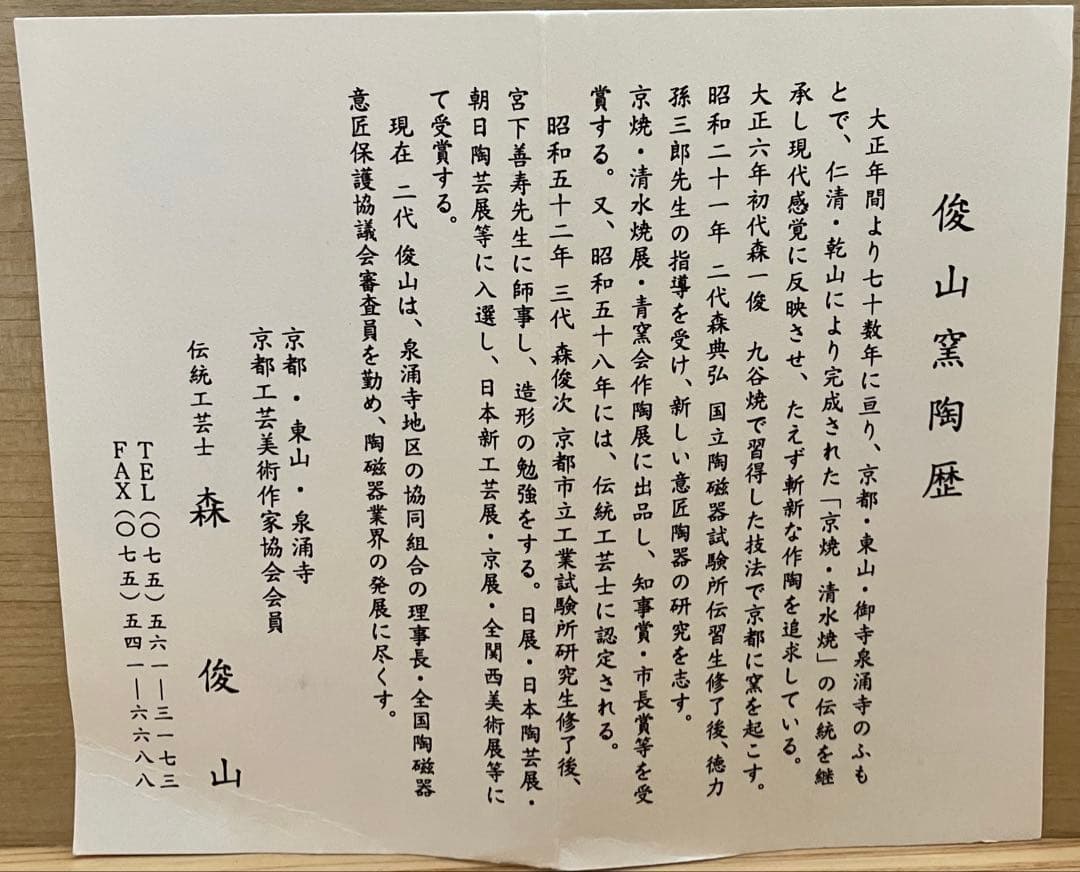 俊山窯陶歴
大正年間より七十数年に亘り、京都・東山・御寺泉涌寺のふも
とで、仁清・乾山により完成された「京焼・清水焼」の伝統を継
承し現代感覚に反映させ、たえず斬新な作陶を追求している。
大正六年初代森一俊 九谷焼で習得した技法で京都に窯を起こす。
昭和二十一年 二代森典弘 国立陶磁器試験所伝習生修了後、徳力
孫三郎先生の指導を受け、新しい意匠陶器の研究を志す。
京焼・清水焼展・青窯会作陶展に出品し、知事賞・市長賞等を受
賞する。又、昭和五十八年には、伝統工芸士に認定される。
昭和五十二年 三代 森俊次 京都市立工業試験所研究生修了後、
宮下善寿先生に師事し、造形の勉強をする。日展・日本陶芸展・
朝日陶芸展等に入選し、日本新工芸展・京展・全関西美術展等に
て受賞する。
現在 二代 俊山は、泉涌寺地区の協同組合の理事長・全国陶磁器
意匠保護協議会審査員を勤め、陶磁器業界の発展に尽くす。
京都・東山・泉涌寺
京都工芸美術作家協会会員
伝統工芸士 森 俊山
TEL(〇七五)五六一―三一七三
FAX(〇七五)五四一―六六八八